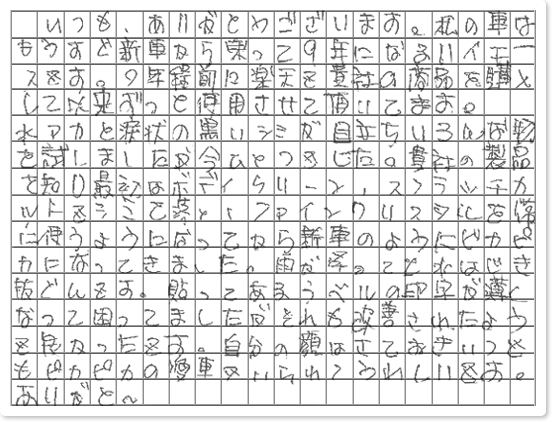 いつも、ありがとうございます。私の車は
もうすぐ新車から乗って9年になるハイエー
スです。2年程前に楽天で貴社の商品を購入
して以来ずっと使用させて頂いてます。
水アカと涙状の黒いシミが目立ちいろんな物
を試しましたが今ひとつでした。貴社の製品
を知り最初はボディクリーン、スクラッチカ
ットでシミを落とし、ファインクリスタルを常
に使うようになってから新車のようにピカピ
カになってきました。雨が降っても水はじき
抜ぐんです。貼ってあるラベルの印字が薄く
なって困ってましたがそれも改善されたよう
で良かったです。自分の顔はさておきいつで
もピカピカの愛車でいられてうれしいです。
ありがと〜